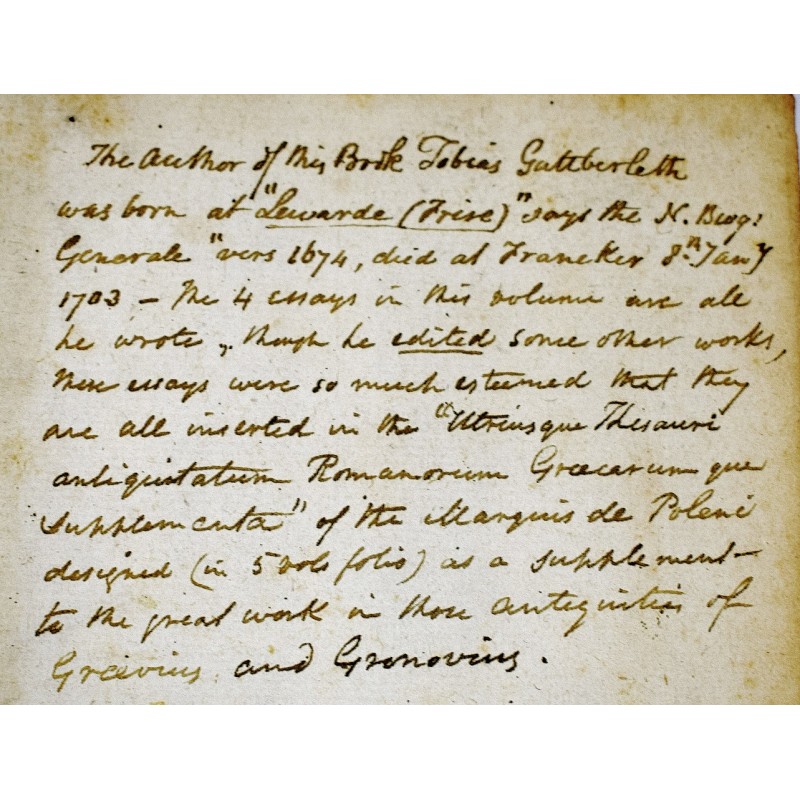 The Author of this Book Tobias Gutberleth
was born at "Lewarde (Frise)" says the N. Biog:
Generale "vers 1674, died at Franeker 8th Jany
1703 – The 4 essays in this volume are all
he wrote, though he edited some other works,
these essays were so much esteemed that they
are all inserted in the "Utriusque Thesauri
antiquitatum Romanorum Græcarum que
Supplementa" of the Marquis de Poleni
designed (in 5 vols folio) as a supplement
to the great work in those antiquities of
Grævius and Gronovius.